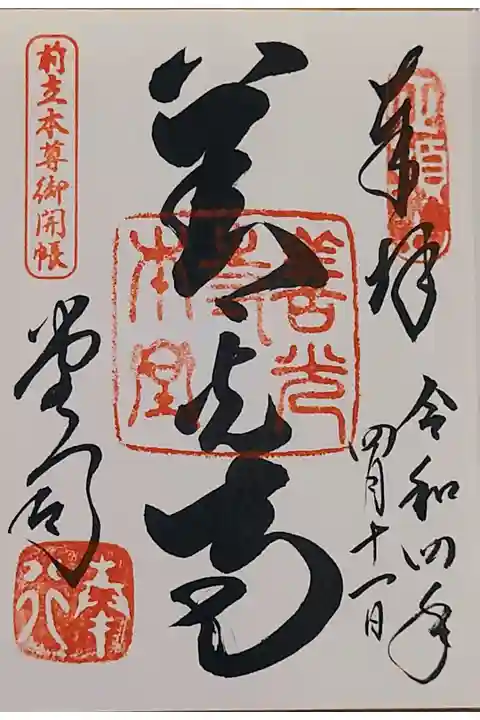 奉拝
令和四年
四月十一日
善光寺
善光寺本堂
前立本尊御開帳
堂司
奉行